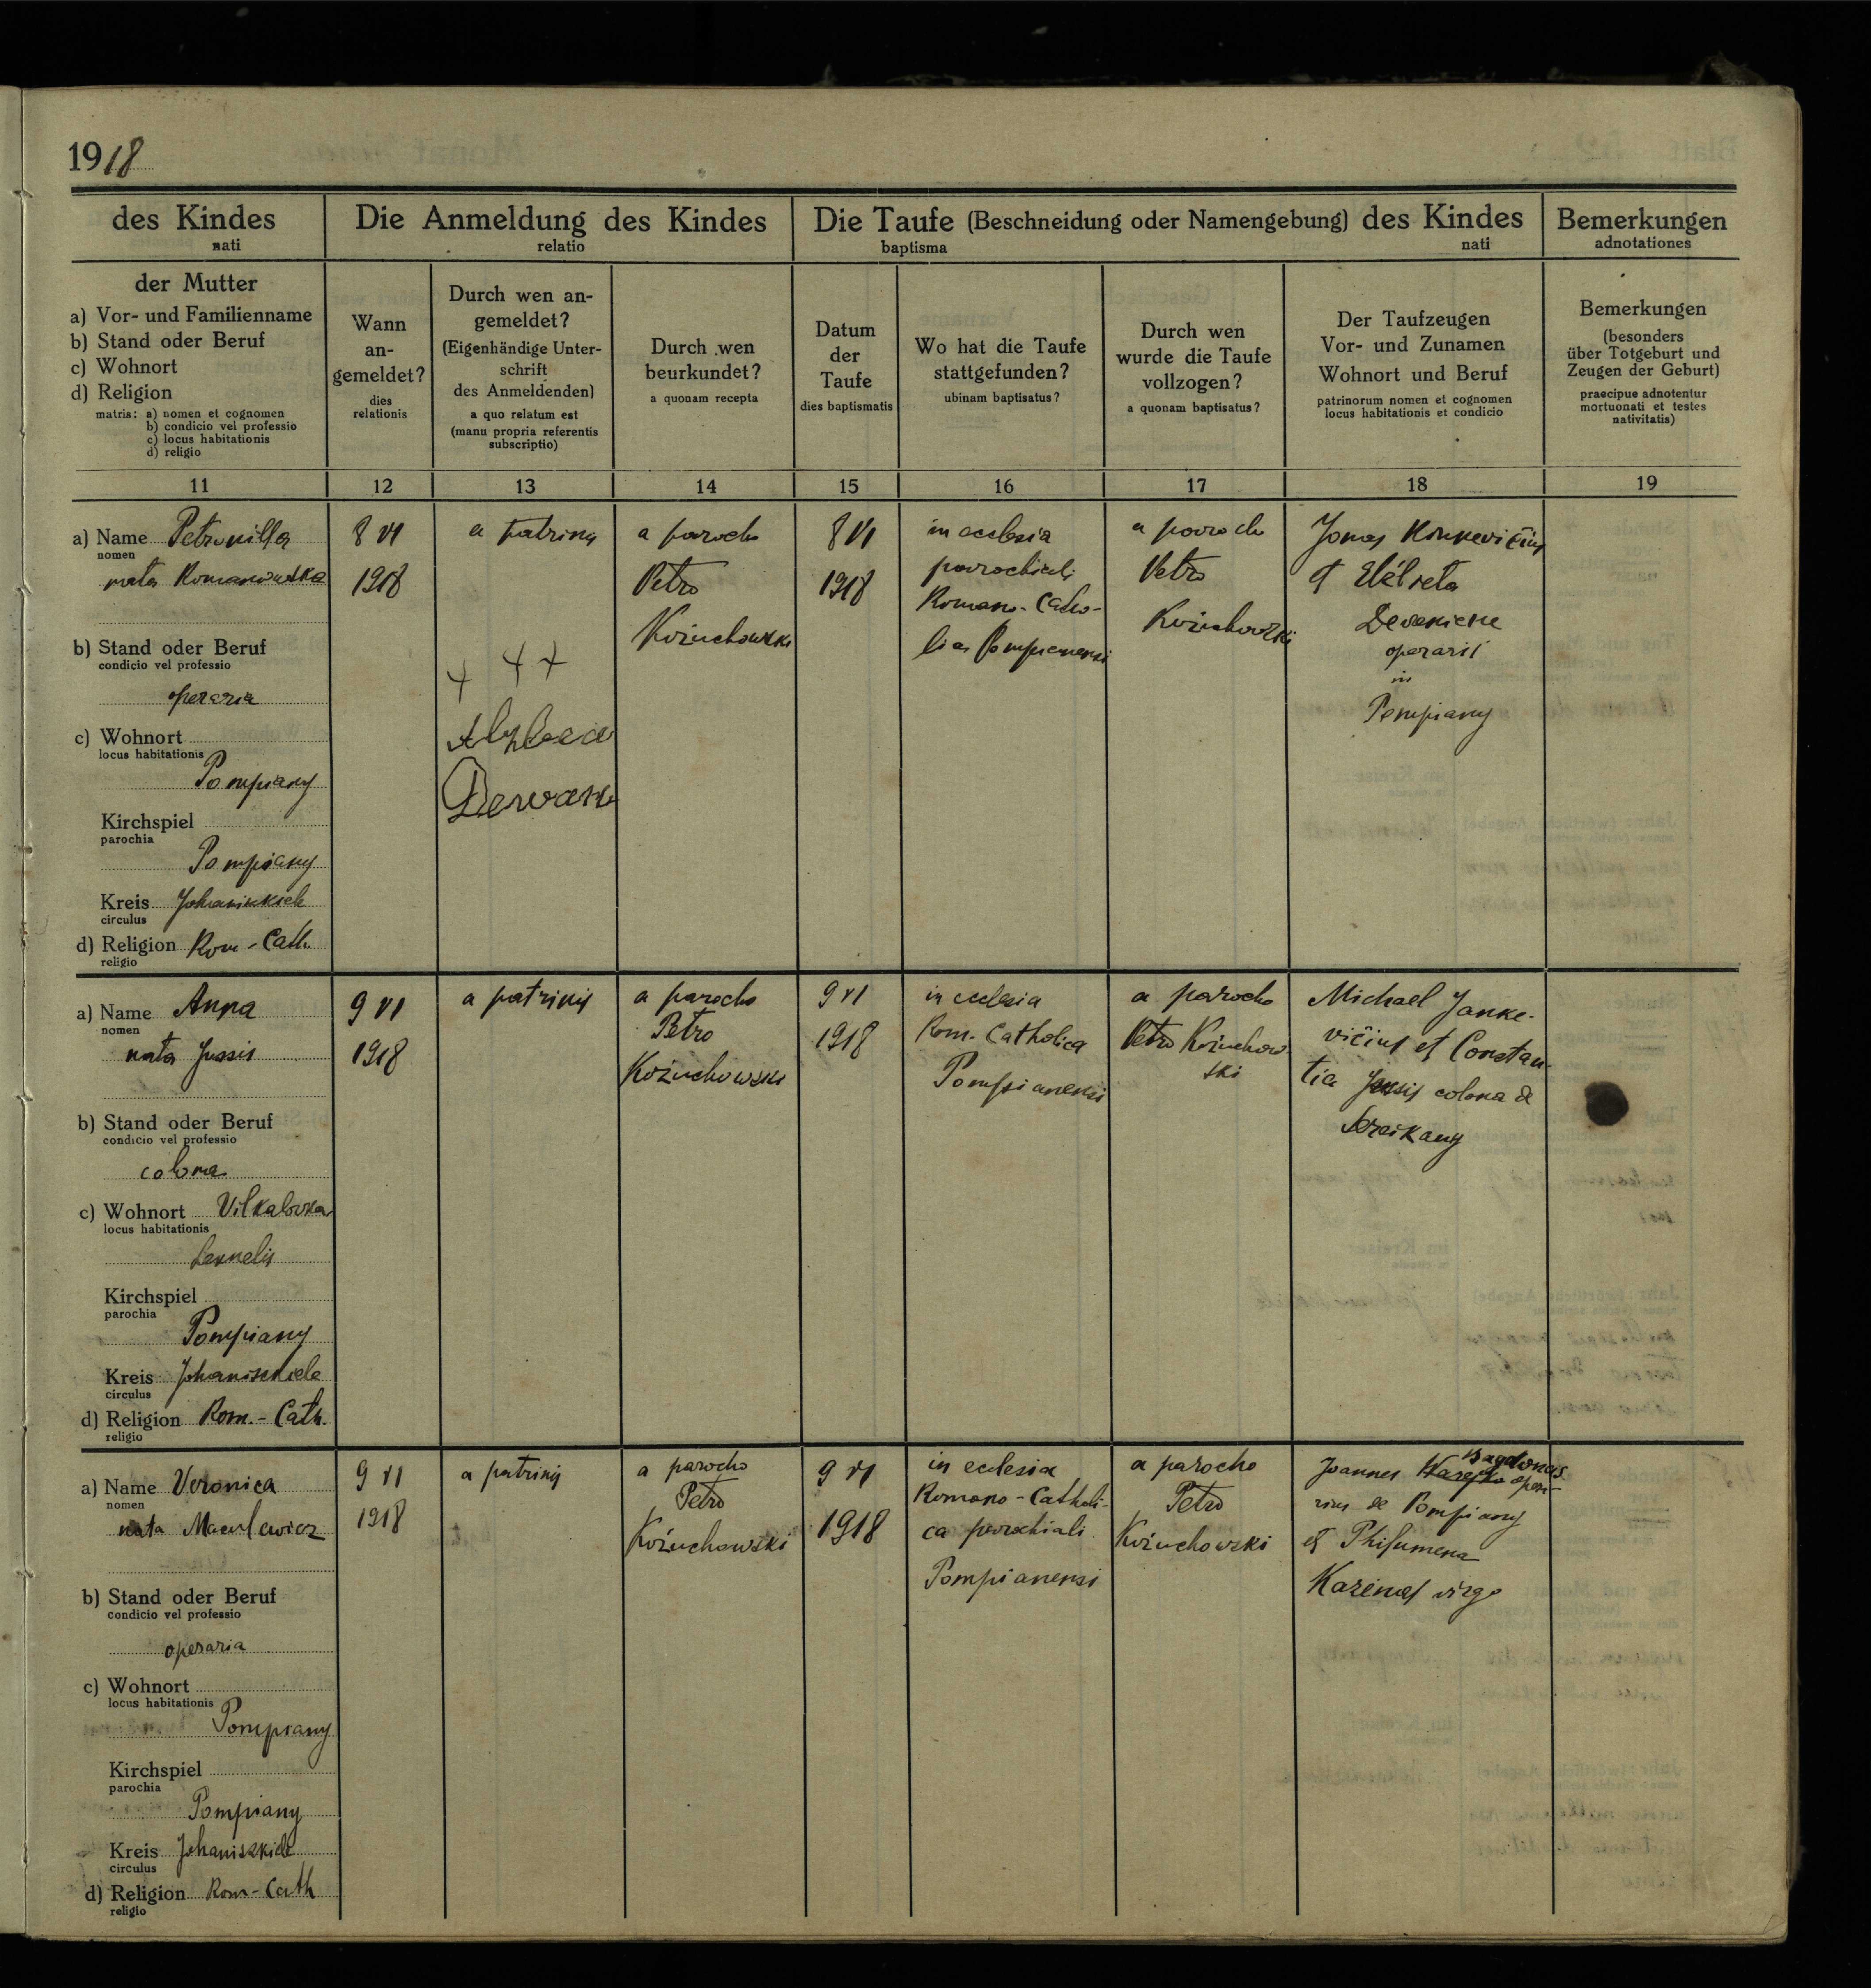 1918
des Kindes
nati
Die Anmeldung des Kindes
relatio
Die Taufe (Beschneidung oder Namengebung) des Kindes
baptisma nati
Bemerkungen
adnotationes
der Mutter
a) Vor- und Familienname
b) Stand oder Beruf
c) Wohnort
d) Religion
matris: a) nomen et cognomen
b) condicio vel professio
c) locus habitationis
d) religio
Wann
an-
gemeldet?
dies
relationis
Durch wen an-
gemeldet?
(Eigenhändige Unter-
schrift
des Anmeldenden)
a quo relatum est
(manu propria referentis
subscriptio)
Durch wen
beurkundet?
a quonam recepta
Datum
der
Taufe
dies baptismatis
Wo hat die Taufe
stattgefunden?
ubinam baptisatus?
Durch wen
wurde die Taufe
vollzogen?
a quonam baptisatus?
Der Taufzeugen
Vor- und Zunamen
Wohnort und Beruf
patrinorum nomen et cognomen
locus habitationis et condicio
Bemerkungen
(besonders
über Totgeburt und
Zeugen der Geburt)
praecipue adnotentur
mortuonati et testes
nativitatis)
11 12 13 14 15 16 17 18 19
a) Name Petronilla
nomen
nata Romanowska
b) Stand oder Beruf
condicio vel professio
operaria
c) Wohnort
locus habitationis
Pompiany
Kirchspiel
parochia
Pompiany
Kreis
circulus
d) Religion Rom-Cath
religio
8 VI
1918
a patrinis
+ + +
a parocho
Petro
Kożuchowski
8 VI
1918
in ecclesia
parochiali
Romano-Catho-
lica Pompianensi
a parocho
Petro
Kożuchowski
Jonas
et Elžbieta
operarii
in
Pompiany
a) Name Anna
nomen
nata Jussis
b) Stand oder Beruf
condicio vel professio
colona
c) Wohnort
locus habitationis
Kirchspiel
parochia
Pompiany
Kreis Johaniszkiele
circulus
d) Religion Rom.-Cath.
religio
9 VI
1918
a patrinis
a parocho
Petro
Kożuchowski
9 VI
1918
in ecclesia
Rom. Catholica
Pompianensi
a parocho
Petro Kożuchow
ski
Michael Janke-
vičius et Constan-
tia Jussis colona de
a) Name Veronica
nomen
nata
b) Stand oder Beruf
condicio vel professio
operaria
c) Wohnort
locus habitationis
Pompiany
Kirchspiel
parochia
Pompiany
Kreis Johaniszkiele
circulus
d) Religion Rom-Cath
religio
9 VI
1918
a patrinis
a parocho
Petro
Kożuchowski
9 VI
1918
in ecclesia
Romano-Catholi-
ca parochiali
Pompianensi
a parocho
Petro
Kożuchowski
Bagdonas
Joannes opera-
rius de Pompiany
et Philumena
virgo